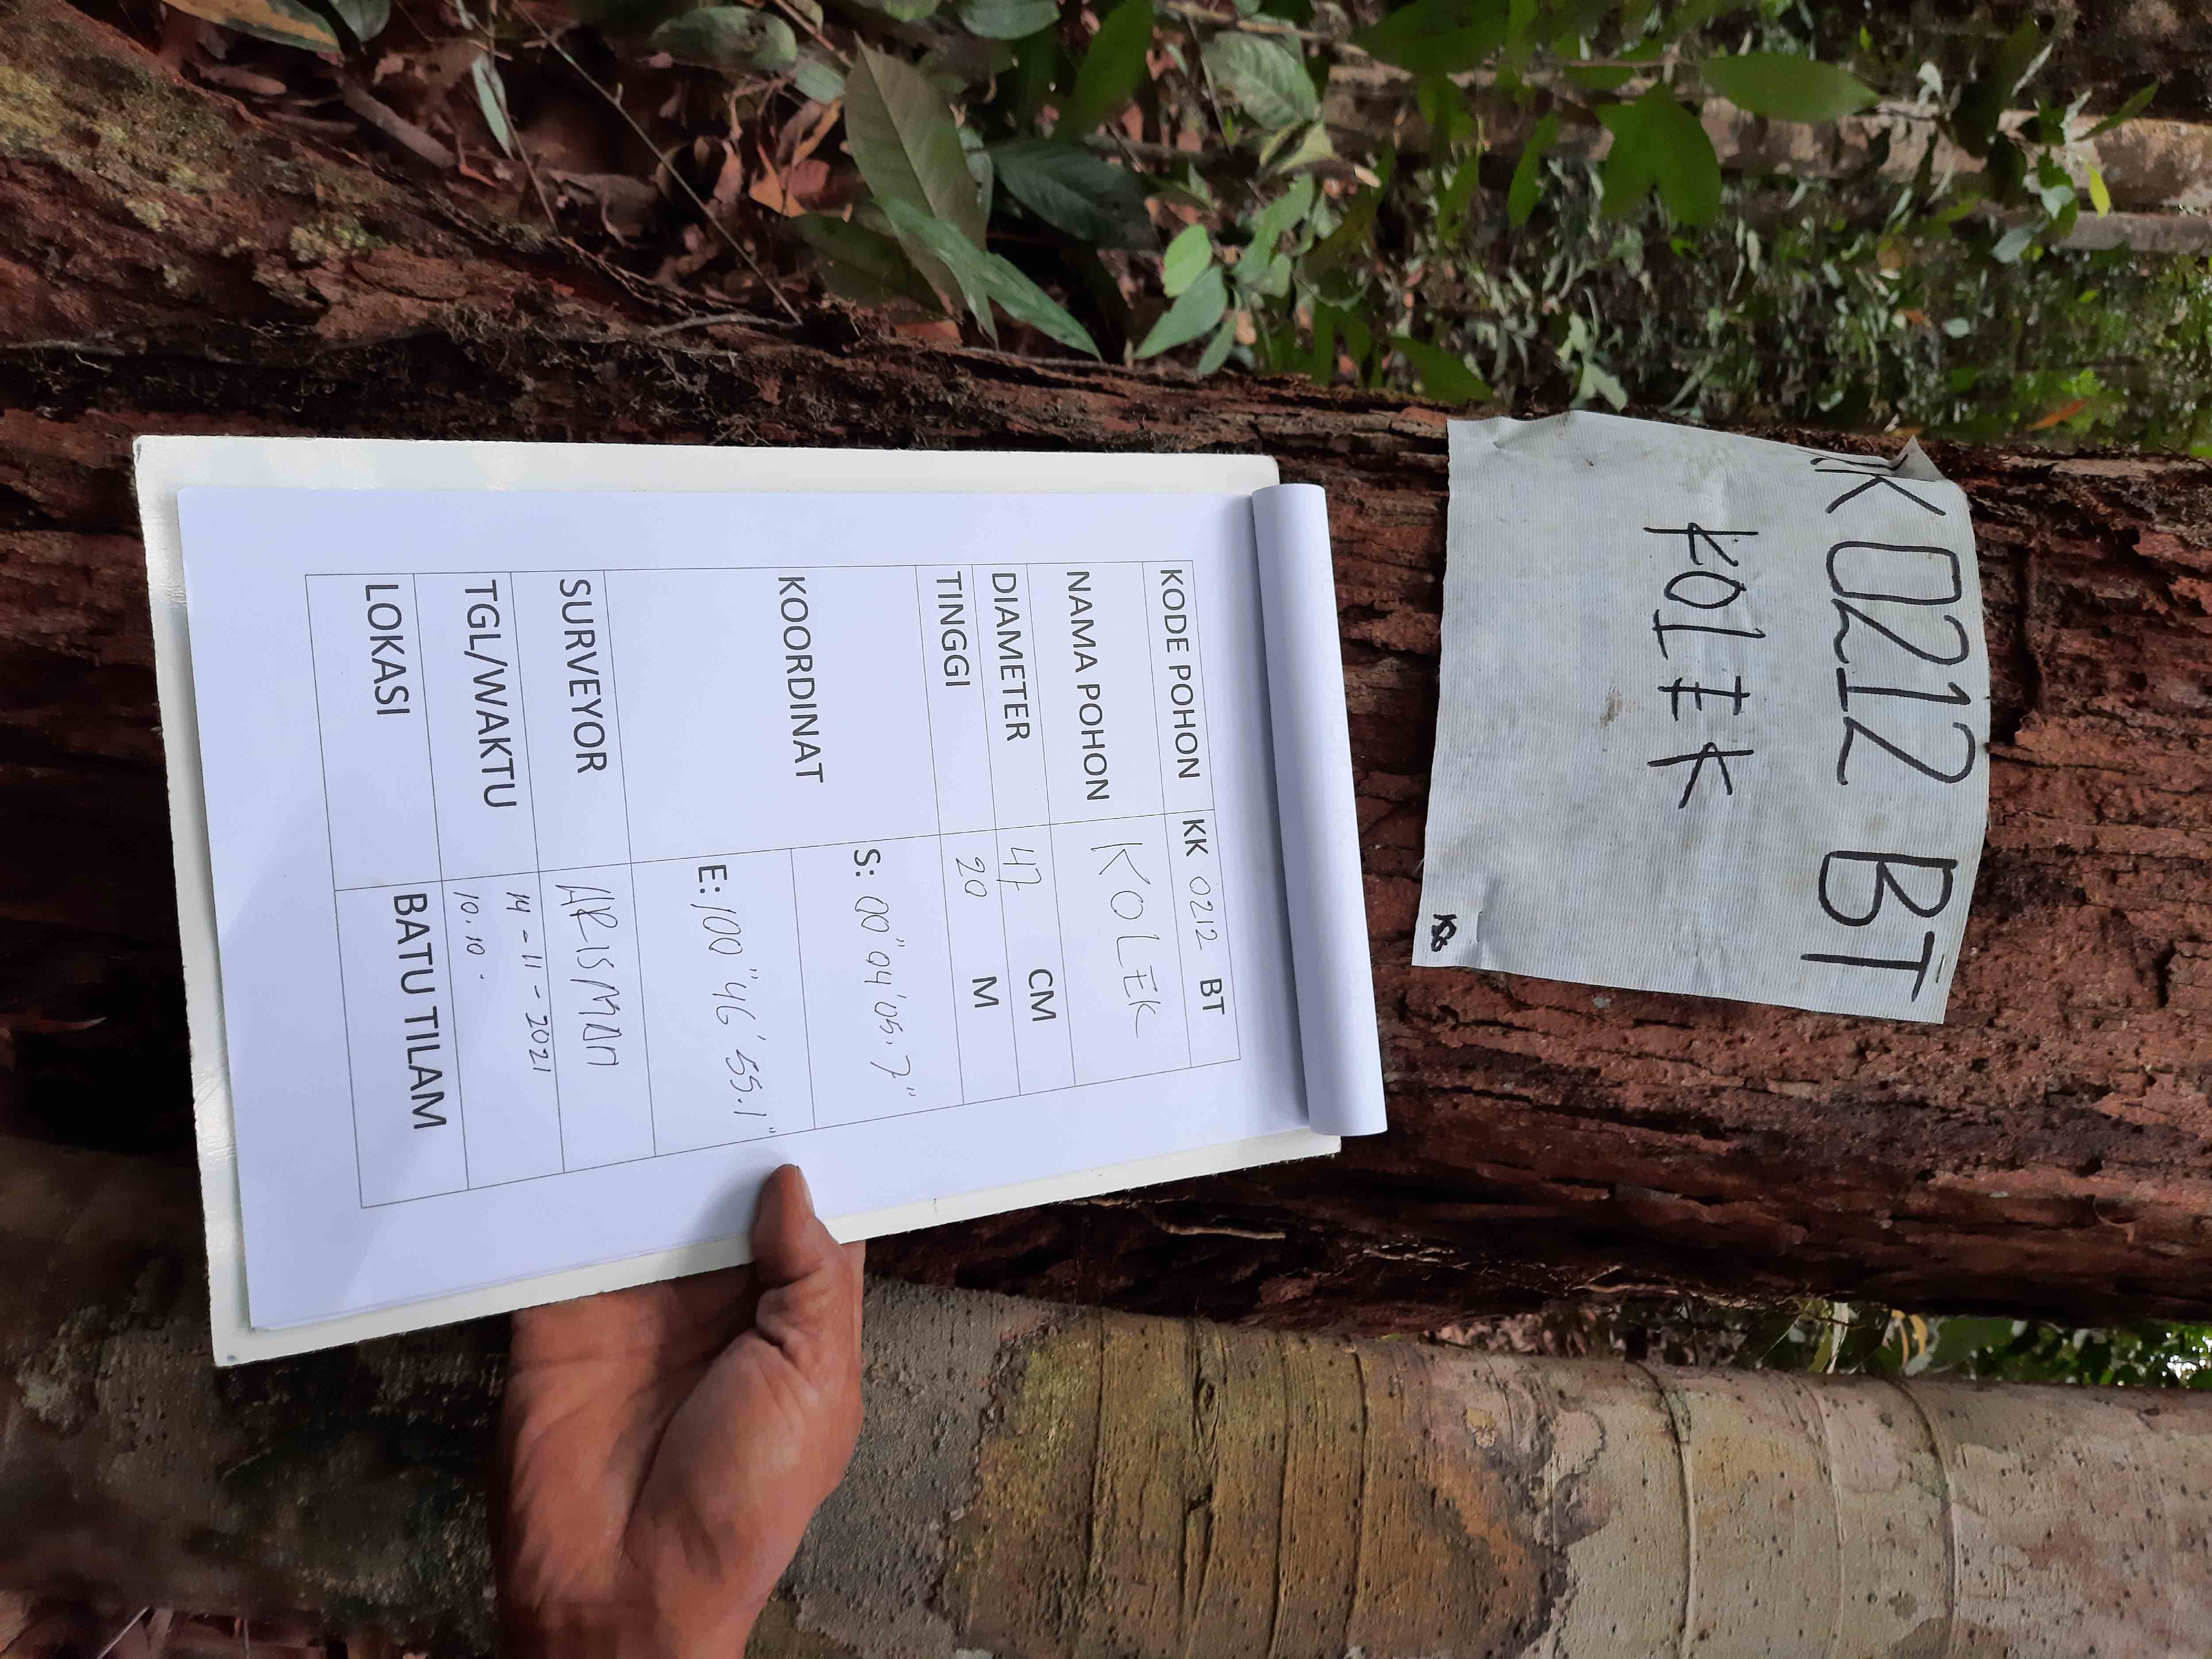 KK 0212 BT
KOLEK
KODE POHON KK 0212 BT
NAMA POHON KOLEK
DIAMETER 47 CM
TINGGI 20 M
KOORDINAT S: 00" 04' 05.7"
E: 100" 46' 55.1"
SURVEYOR ARISMAN
TGL/WAKTU 14-11-2021
10.10.
LOKASI BATU TILAM